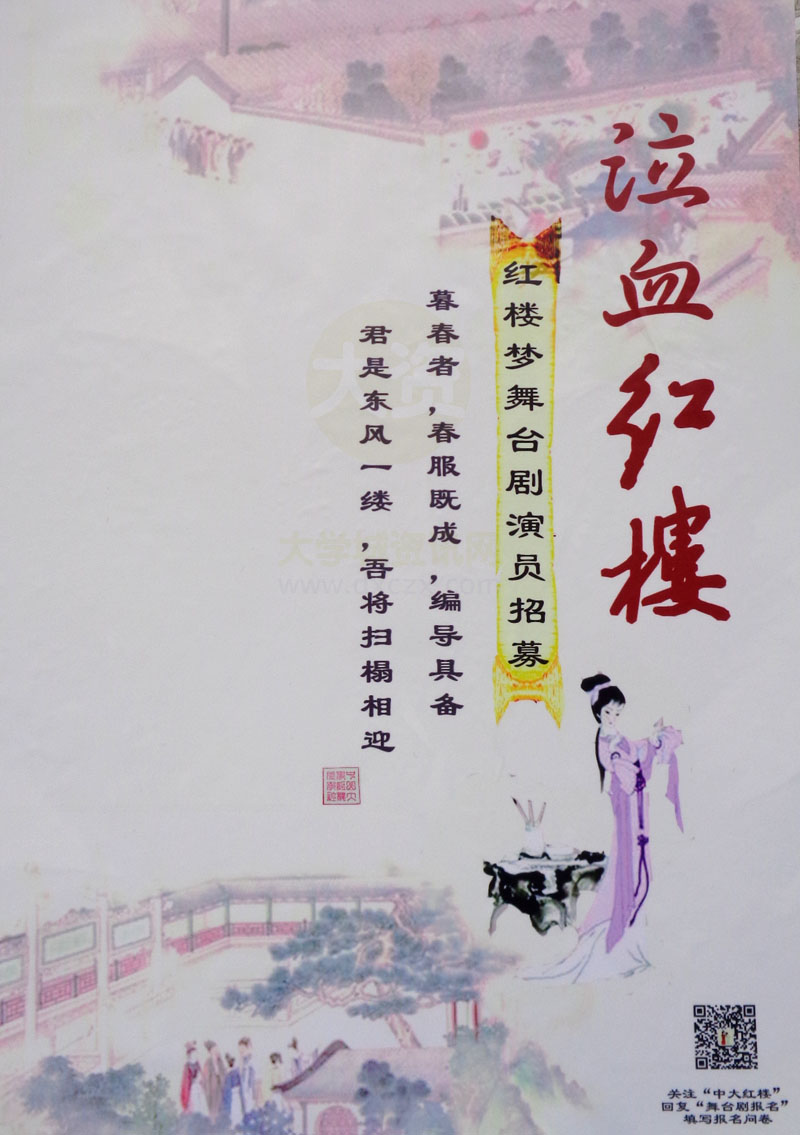 泣血红楼
红楼梦舞台剧演员招募
暮春者，春服既成，编导具备
君是东风一缕，吾将扫榻相迎
大资
大学城资讯网
关注“中大红楼”
回复“舞台剧报名”
填写报名问卷